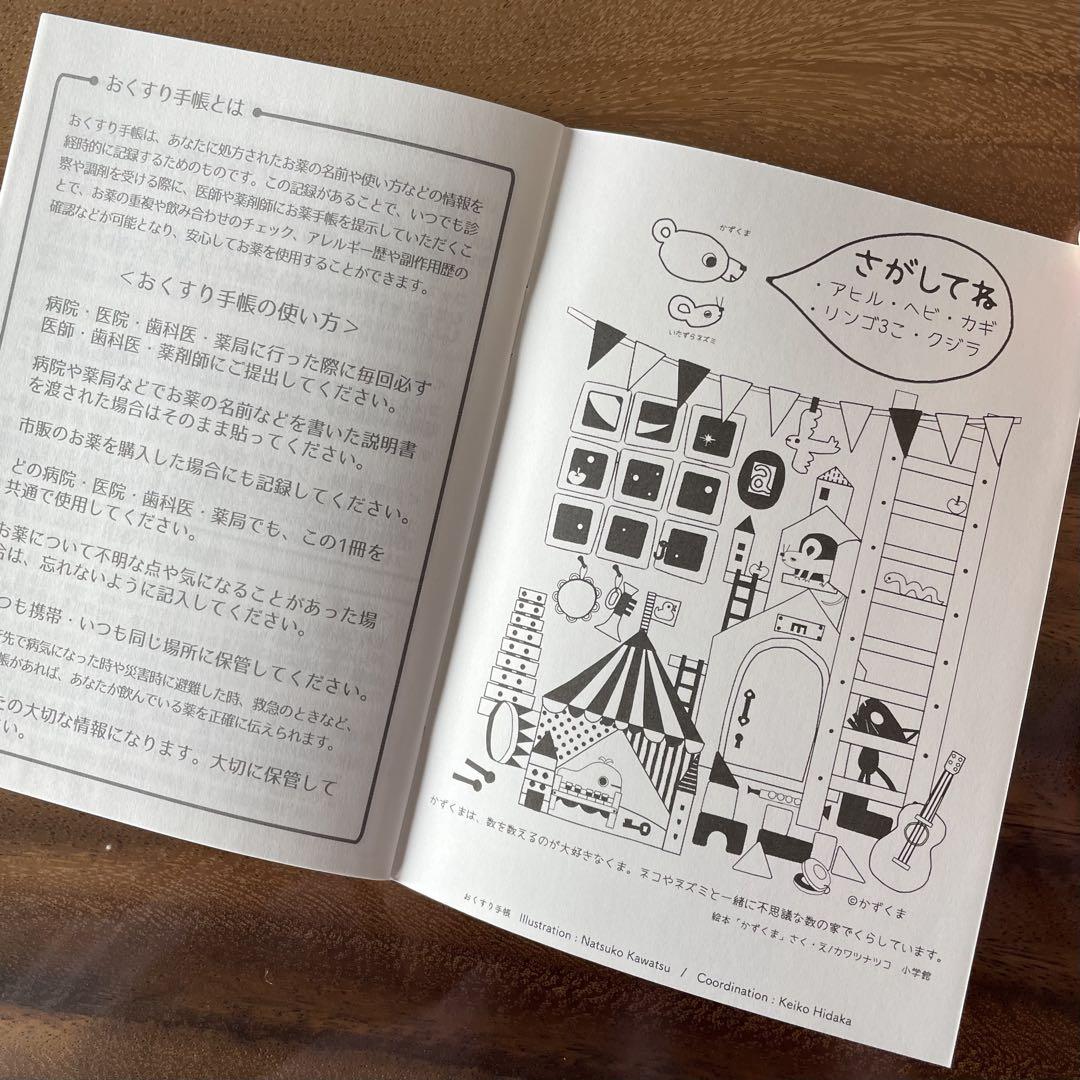 おくすり手帳とは
おくすり手帳は、あなたに処方されたお薬の名前や使い方などの情報を
経時的に記録するためのものです。この記録があることで、いつでも診
察や調剤を受ける際に、医師や薬剤師にお薬手帳を提示していただくこ
とで、お薬の重複や飲み合わせのチェック、アレルギー歴や副作用歴の
確認などが可能となり、安心してお薬を使用することができます。
＜おくすり手帳の使い方＞
病院・医院・歯科医・薬局に行った際に毎回必ず
医師・歯科医・薬剤師にご提出してください。
病院や薬局などでお薬の名前などを書いた説明書
を渡された場合はそのまま貼ってください。
市販のお薬を購入した場合にも記録してください。
どの病院・医院・歯科医・薬局でも、この1冊を
共通で使用してください。
お薬について不明な点や気になることがあった場
合は、忘れないように記入してください。
つも携帯・いつも同じ場所に保管してください。
先で病気になった時や災害時に避難した時、救急のときなど、
帳があれば、あなたが飲んでいる薬を正確に伝えられます。
の大切な情報になります。大切に保管して
さい。
かずくま
いたずらネズミ
さがしてね
・アヒル・ヘビ・カギ
・リンゴ3こ・クジラ
a
m
©かずくま
かずくまは、数を数えるのが大好きなくま。ネコやネズミと一緒に不思議な数の家でくらしています。
絵本「かずくま」さく・え/カワツナツコ 小学館
おくすり手帳 Illustration : Natsuko Kawatsu / Coordination : Keiko Hidaka